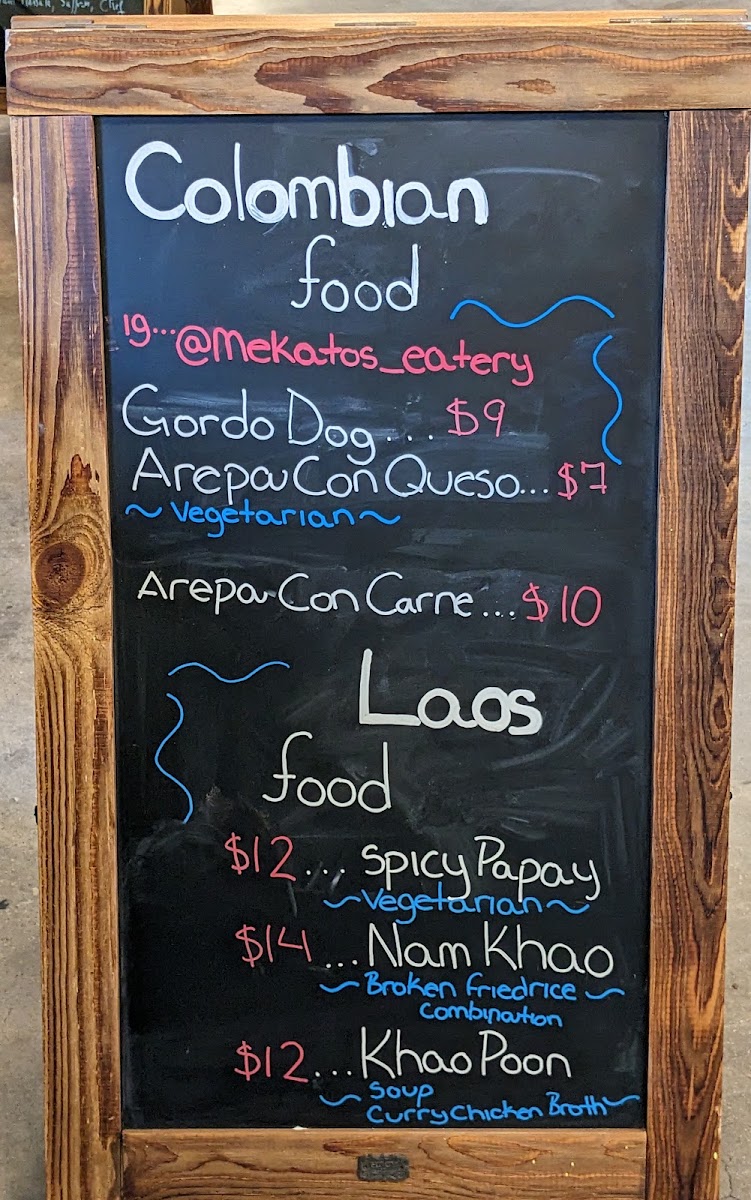 Colombian
food
ig...@mekatos_eatery
Gordo Dog... $9
Arepa Con Queso... $7
~ Vegetarian ~
Arepa Con Carne... $10
Laos
food
$12... Spicy Papay
~ Vegetarian ~
$14... Nam Khao
~ Broken friedrice ~
Combination
$12... Khao Poon
~ Soup
Curry Chicken Broth ~